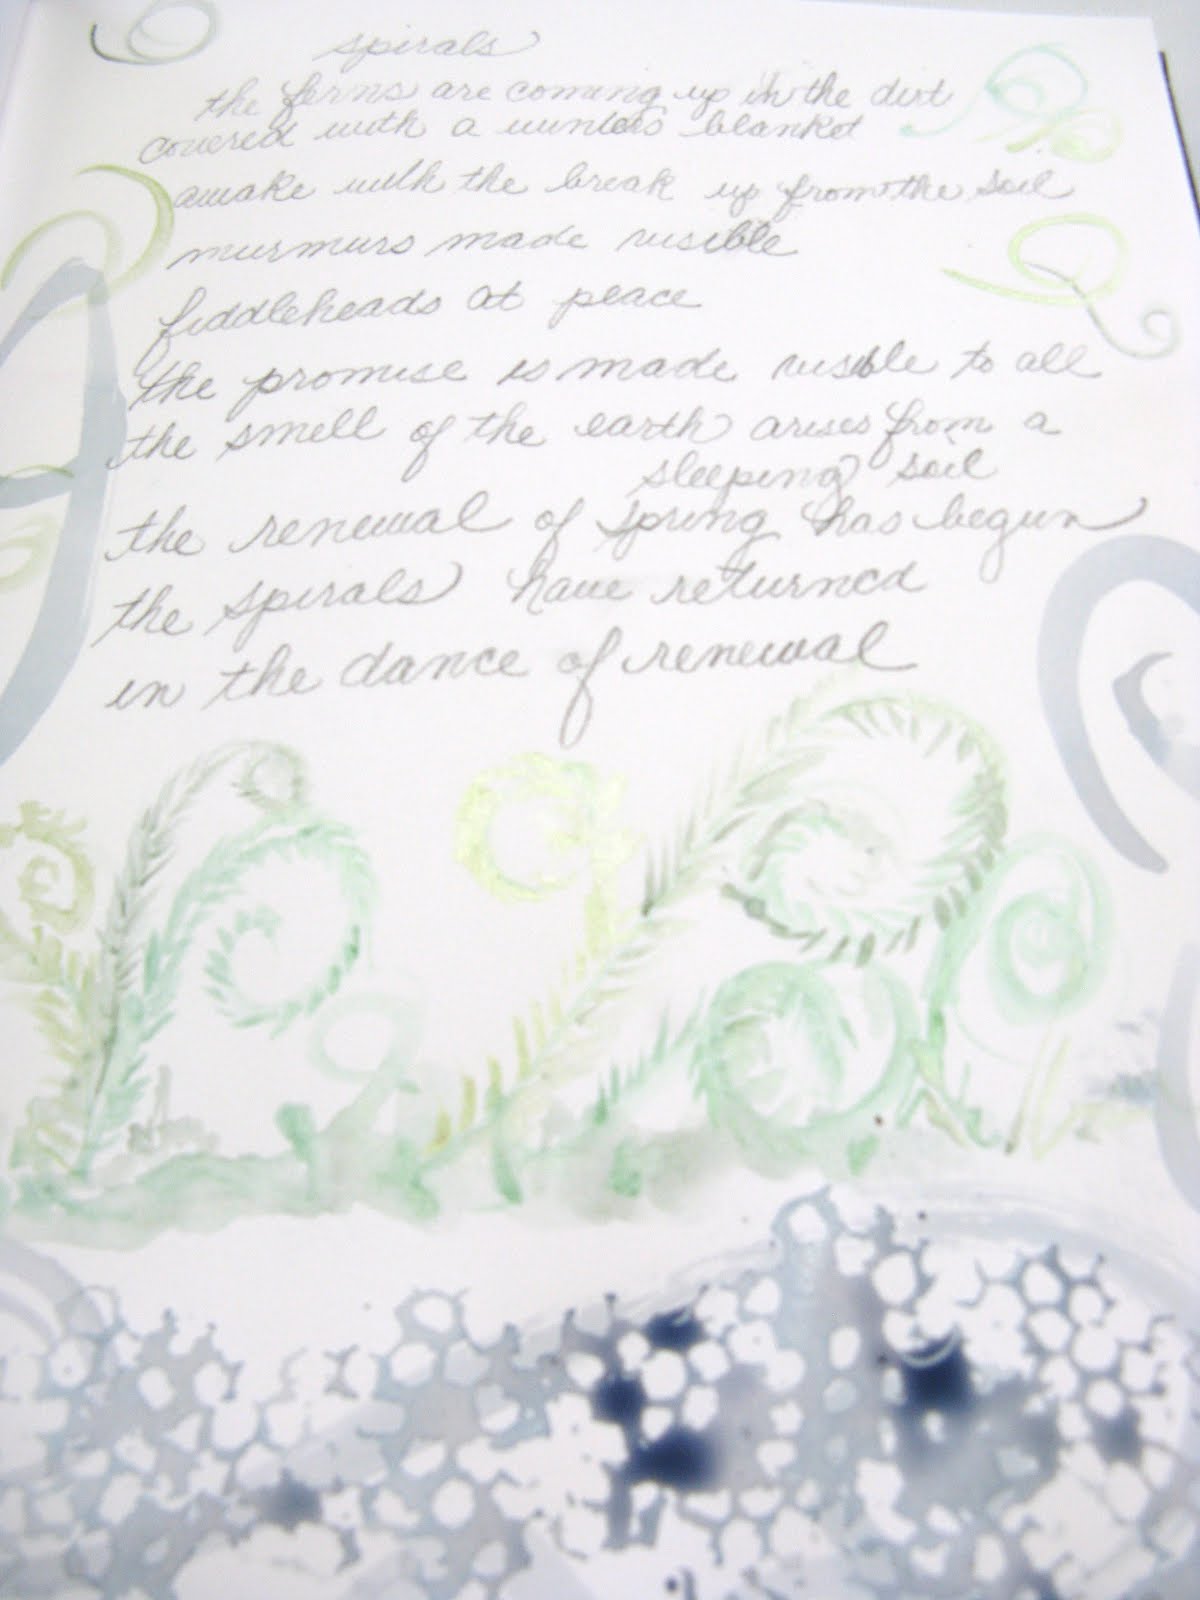 spirals
the ferns are coming up in the dirt
covered with a winters blanket
awake with the break up from the soil
murmurs made visible
fiddleheads at peace
the promise is made visible to all
the smell of the earth arises from a
sleeping soil
the renewal of spring has begun
the spirals have returned
in the dance of renewal